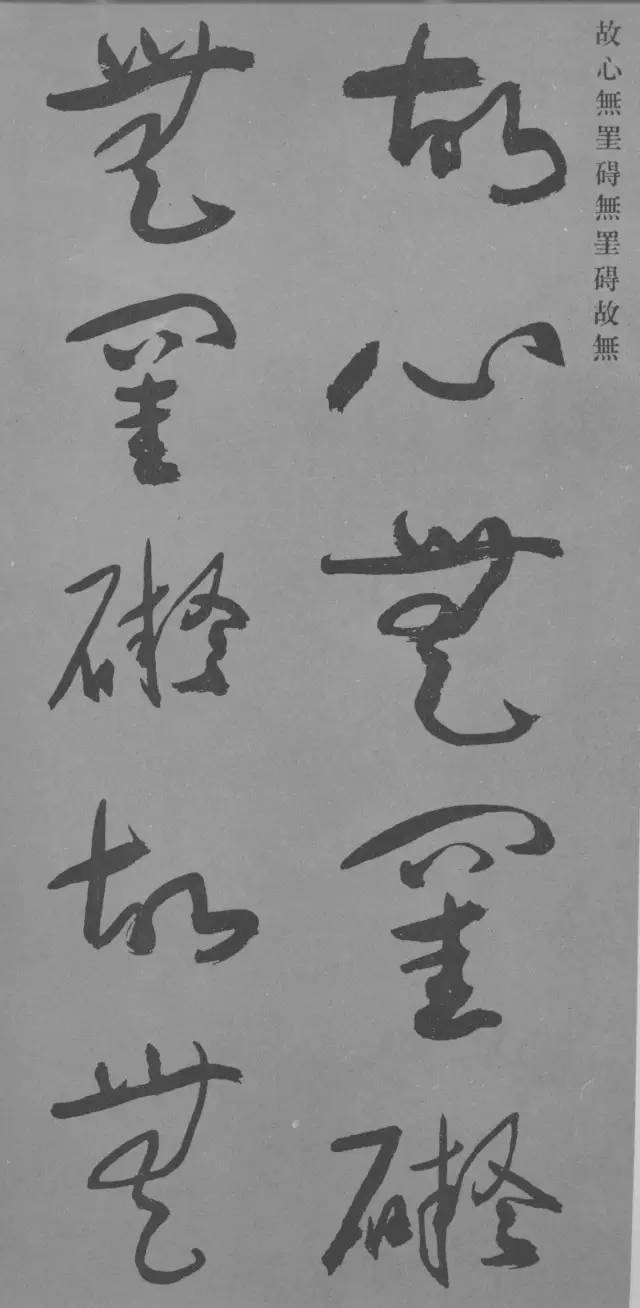 故心無罣碍無罣碍故無
故心無罣礙
無罣礙故無